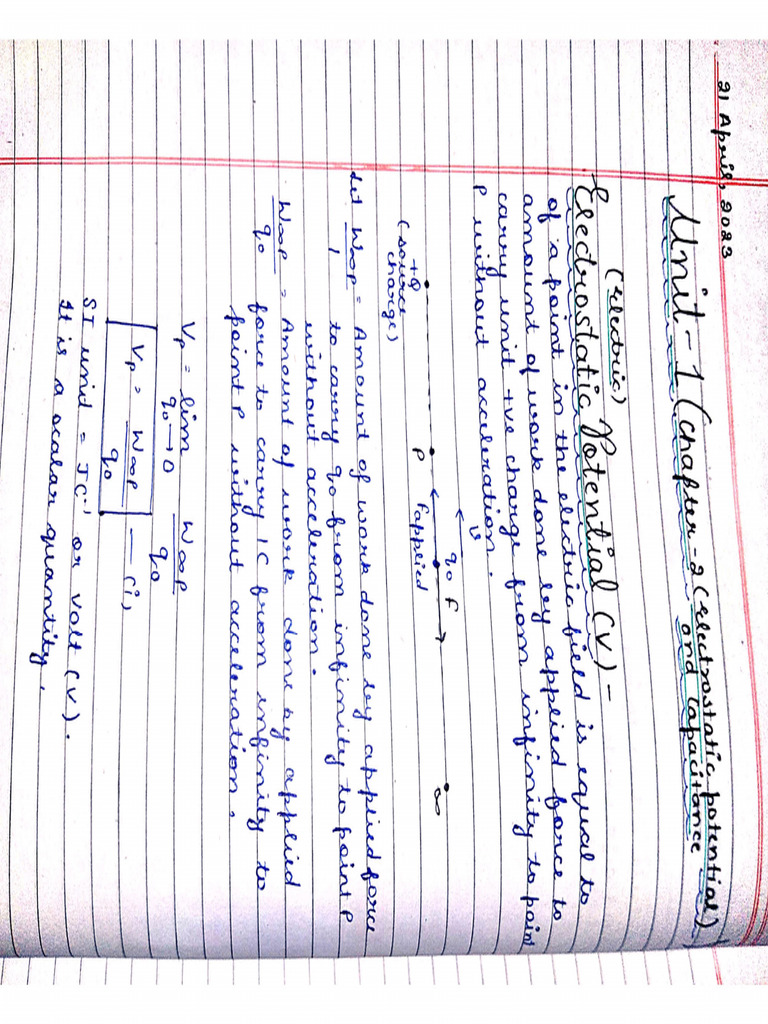 21 April, 2023
Unit-1 (Chapter-2 (electrostatic potential)
and capacitance
(electric)
Electrostatic Potential (V) -
of a point in the electric field is equal to
amount of work done by applied force to
carry unit +ve charge from infinity to point
P without acceleration.
v q₀ F
P Fapplied ∞
+Q
(source
charge)
Let W∞P / 1 = Amount of work done by applied force
to carry q₀ from infinity to point P
without acceleration.
W∞P / q₀ = Amount of work done by applied
force to carry 1C from infinity to
point P without acceleration.
Vp = lim q₀→0 W∞P / q₀
Vp = W∞P / q₀ — (i)
SI unit = JC⁻¹ or volt (V).
It is a scalar quantity.